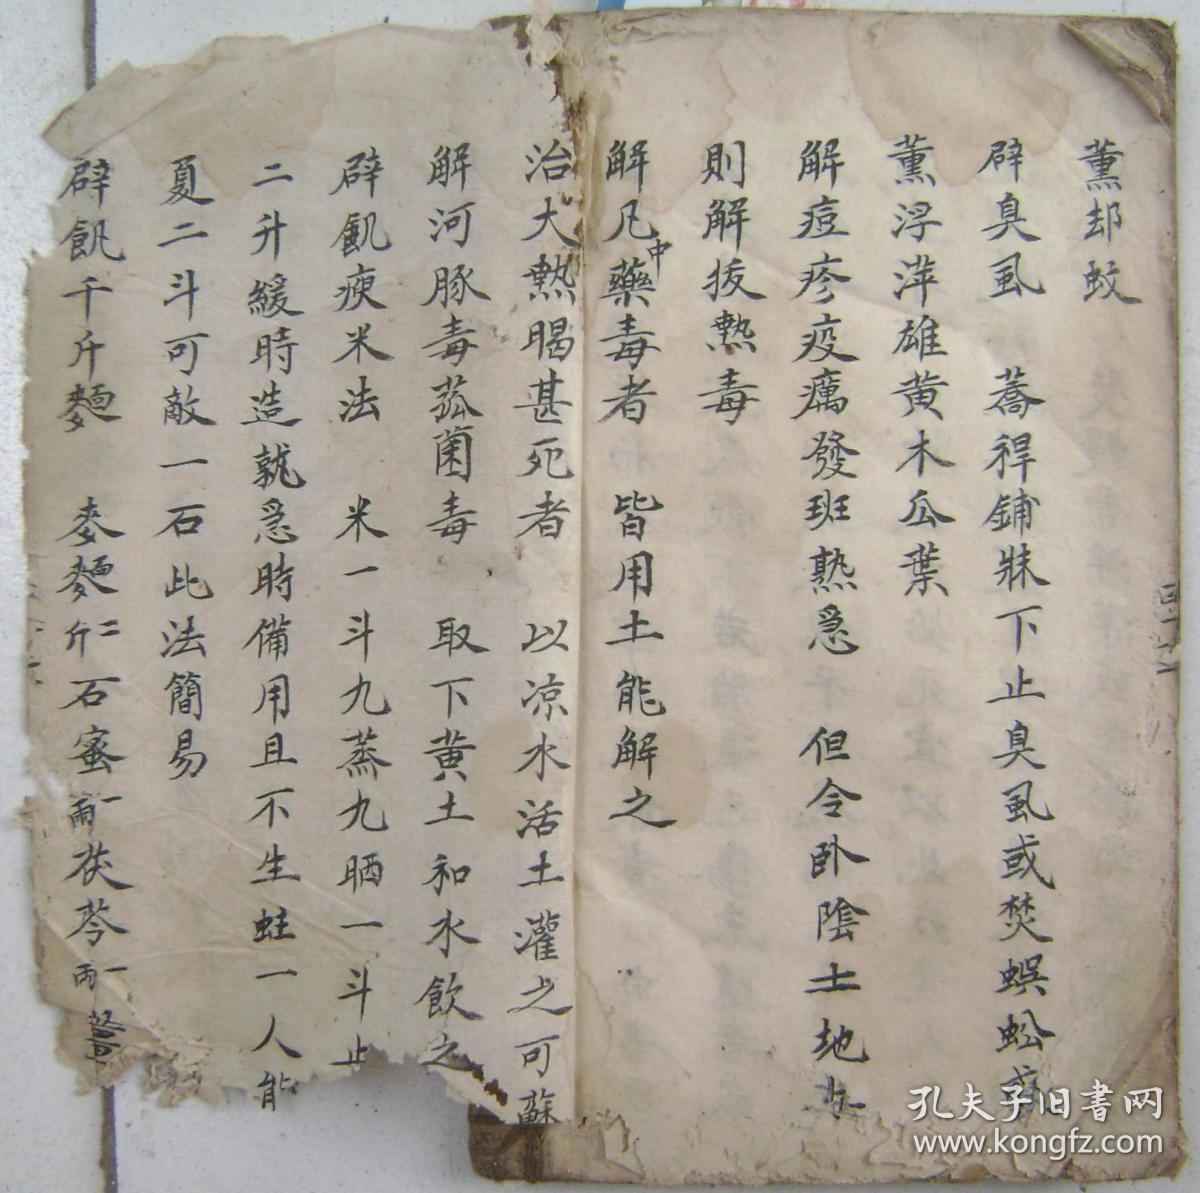 薰却蚊
辟臭虱 蕎稈鋪牀下止臭虱或焚蜈蚣或
薰浮萍雄黄木瓜葉
解痘疹疫癘發班熱急 但令卧陰土地上
則解拔熱毒
解凡中藥毒者 皆用土能解之
治大熱暍甚死者 以凉水活土灌之可蘇
解河豚毒菰菌毒 取下黄土和水飲之
辟飢瘐米法 米一斗九蒸九晒一斗止
二升緩時造就急時備用且不生蛀一人能
夏二斗可敵一石此法簡易
辟飢千斤麵 麥麵二斤石蜜一兩茯苓一兩
孔夫子旧书网
www.kongfz.com